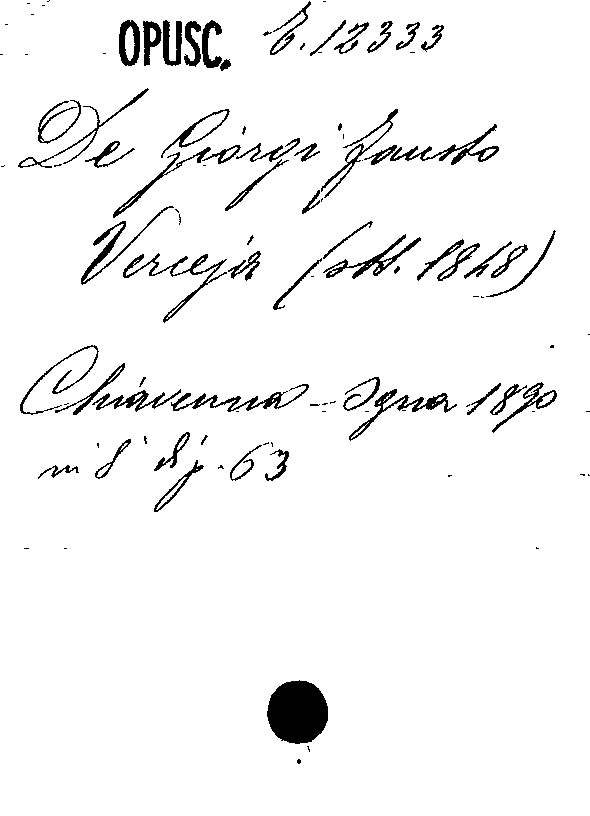 OPUSC. E. 12333
De Giorgi Fausto
Verceja (ott. 1848)
Chiavenna - Ogna 1890
in 8° di p. 63